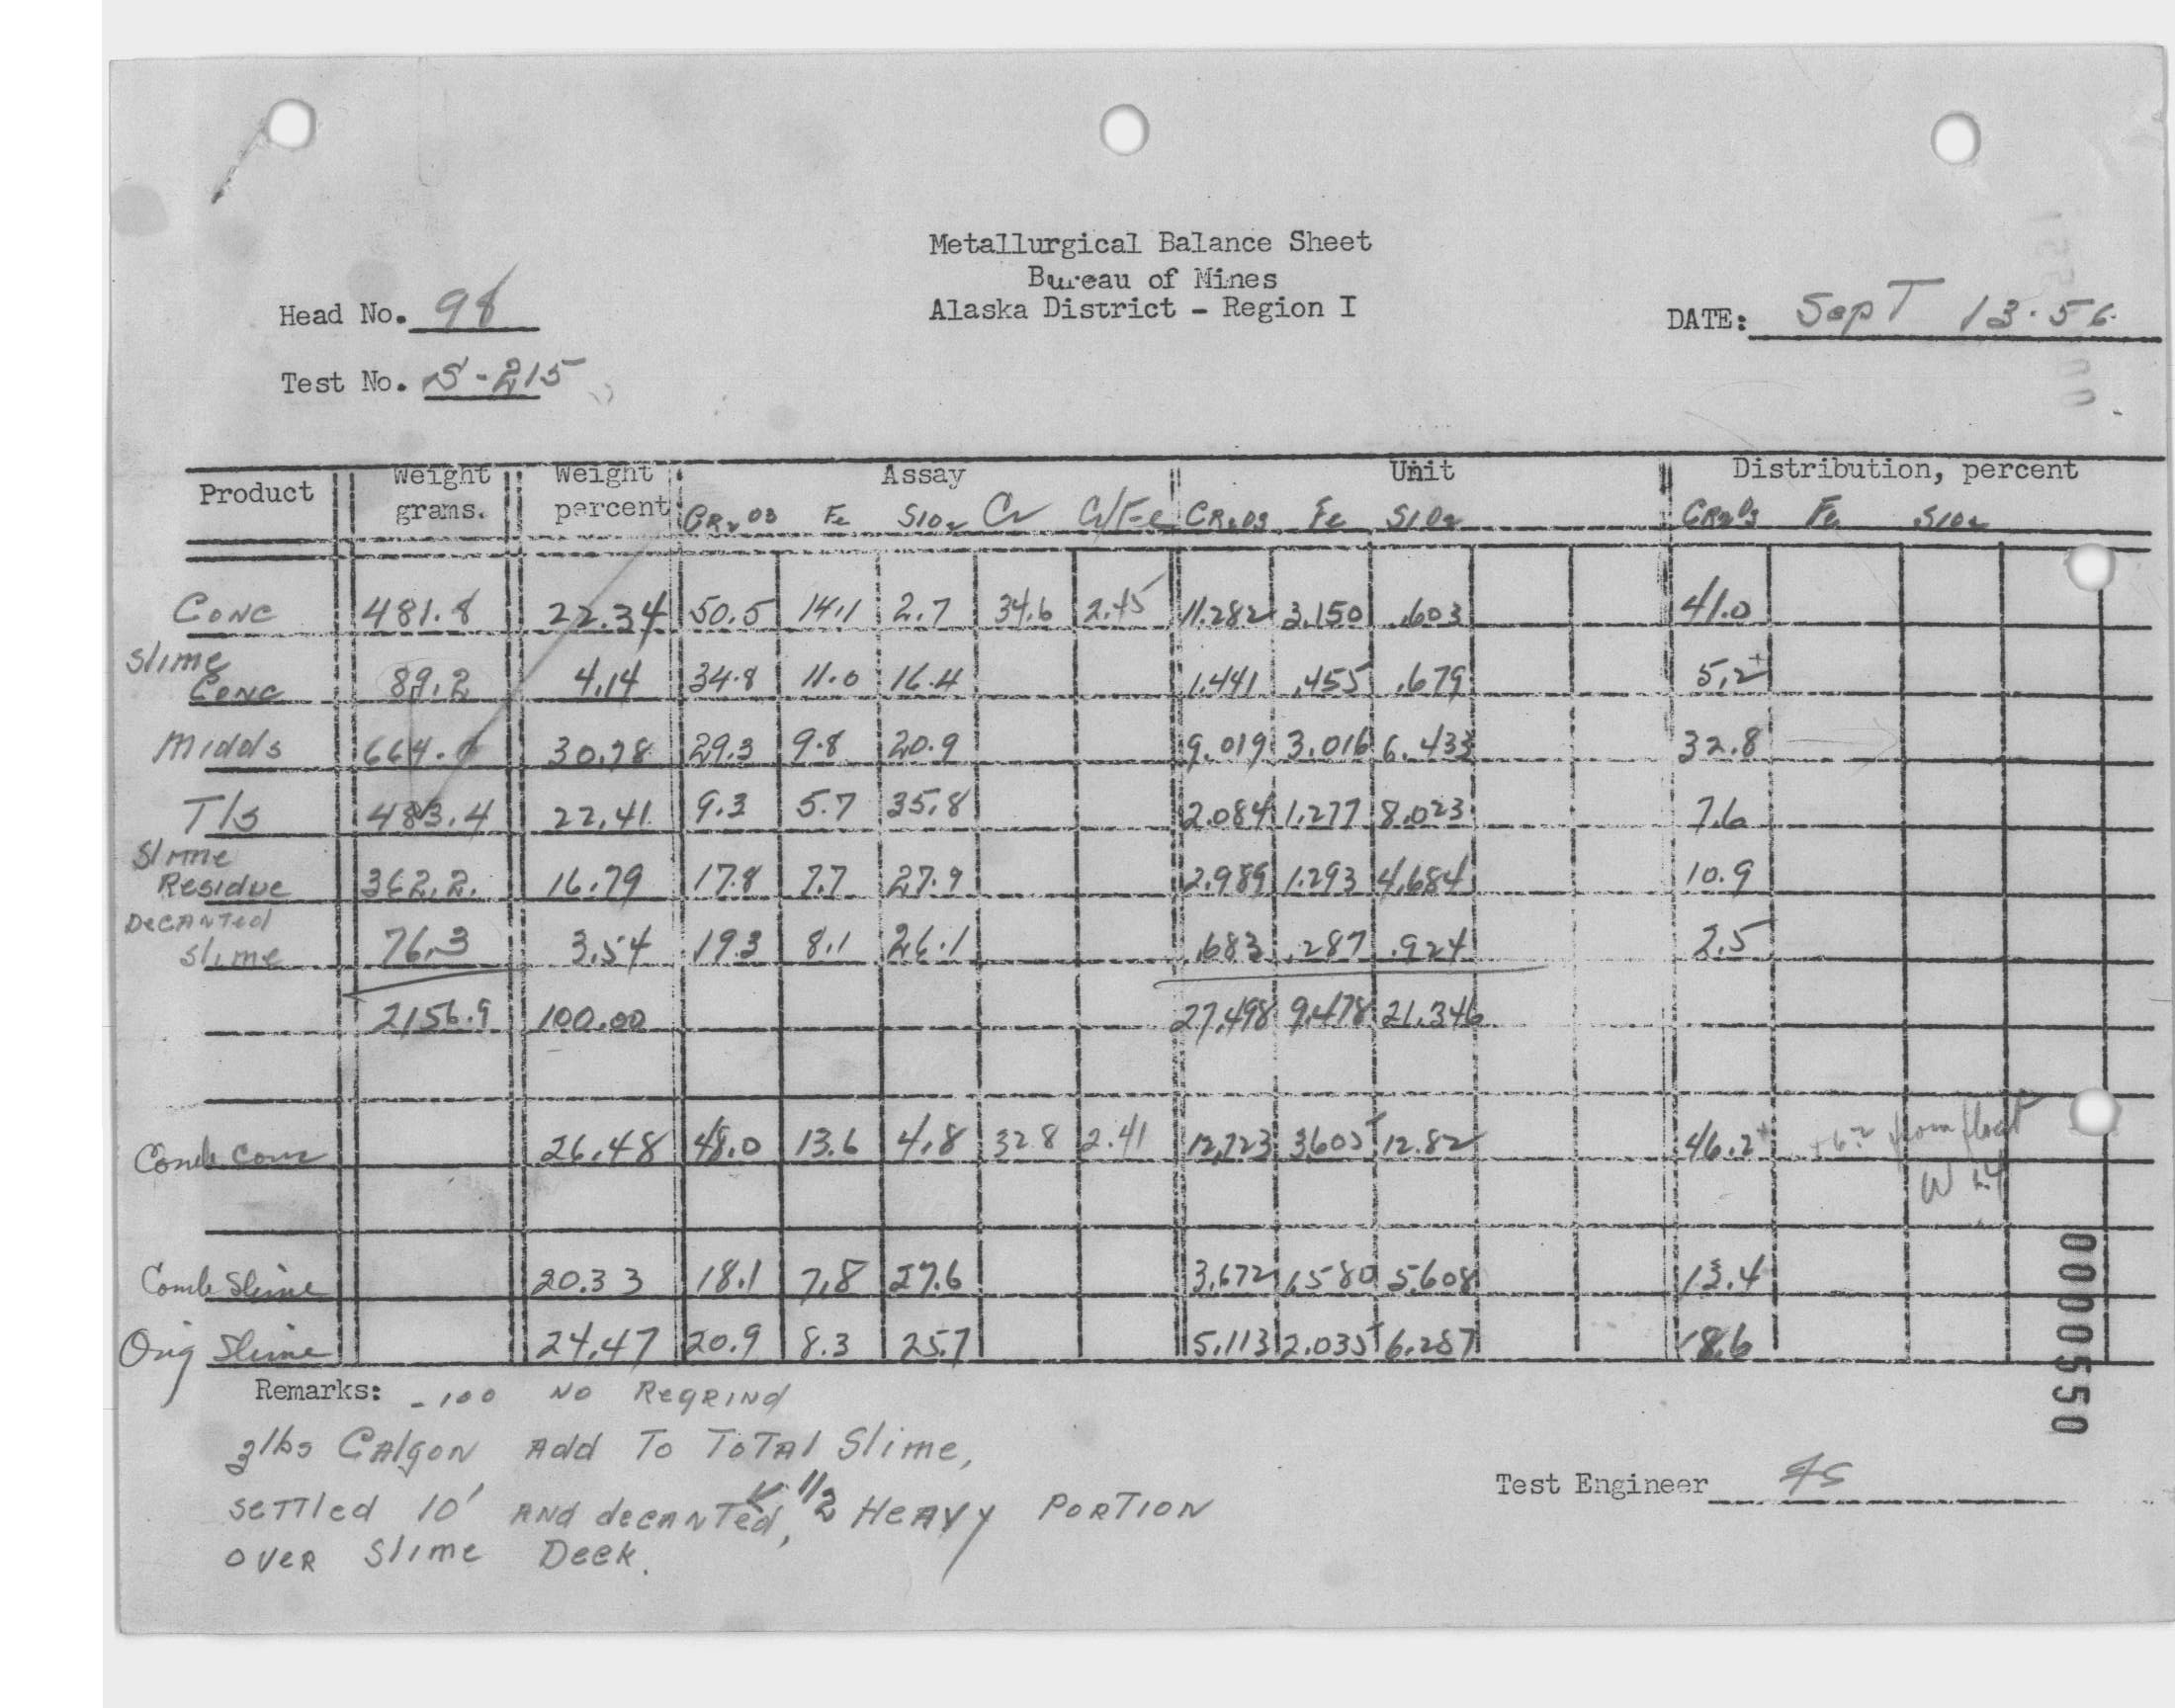 Metallurgical Balance Sheet
Bureau of Mines
Alaska District - Region I
Head No. 98
DATE: Sept 13-56
Test No. S-215
Product Weight grams. Weight percent Assay Unit Distribution, percent
CR2O3 Fe SIO2 Cr Cr/Fe CR2O3 Fe SIO2 CR2O3 Fe SIO2
Conc 481.8 22.34 50.5 14.1 2.7 34.6 2.45 11.282 3.150 .603 41.0
Slime Conc 89.2 4.14 34.8 11.0 16.4 1.441 .455 .679 5.2+
Midds 664.0 30.78 29.3 9.8 20.9 9.019 3.016 6.433 32.8
Tls 483.4 22.41 9.3 5.7 35.8 2.084 1.277 8.023 7.6
Slime Residue 362.2 16.79 17.8 7.7 27.9 2.989 1.293 4.684 10.9
Decanted Slime 76.3 3.54 19.3 8.1 26.1 .683 .287 .924 2.5
2156.9 100.00 27.498 9.478 21.346
Comb Conc 26.48 48.0 13.6 4.8 32.8 2.41 12.723 3.605 12.82 46.2+ +6.2 from float
Comb Slime 20.33 18.1 7.8 27.6 3.672 1.580 5.608 13.4
Orig Slime 24.47 20.9 8.3 25.7 5.113 2.035 6.287 18.6
Remarks: -100 No Regrind
3lbs Calgon Add To Total Slime,
settled 10' And decanted, 1/2 Heavy Portion
over Slime Deck.
Test Engineer FS
0000550